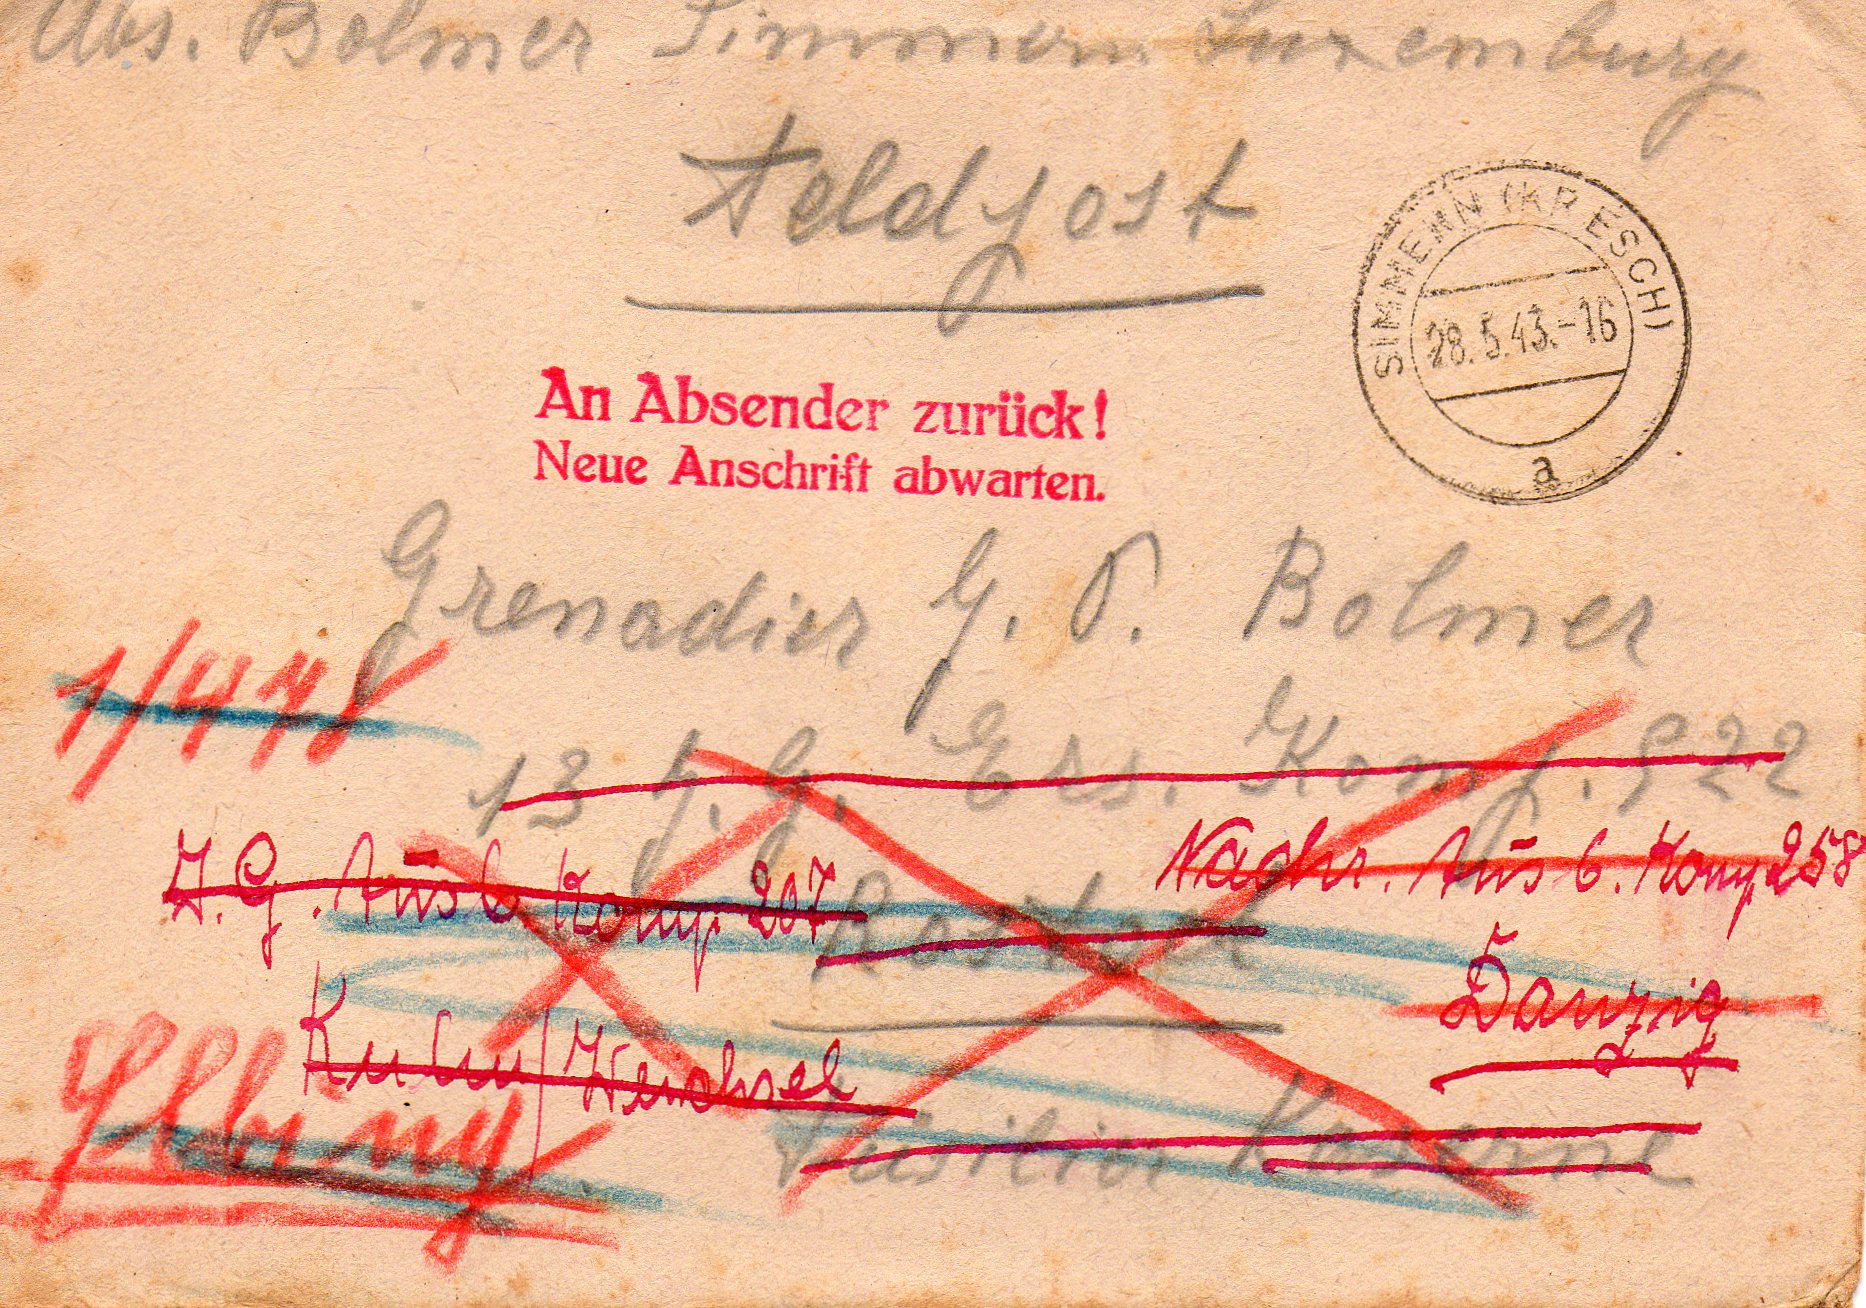 Abs. Bolmer Simmern Luxemburg
Feldpost
SIMMERN (KR ESCH)
28.5.43.-16
a
An Absender zurück!
Neue Anschrift abwarten.
Grenadier J. P. Bolmer
1/478
13 J. G. Ers. Komp. 522
J. G. Ausb Komp. 207
Nachr. Ausb. Komp. 258
Rostock
Danzig
Kulm/Weichsel
Elbing
Füsilier Kaserne